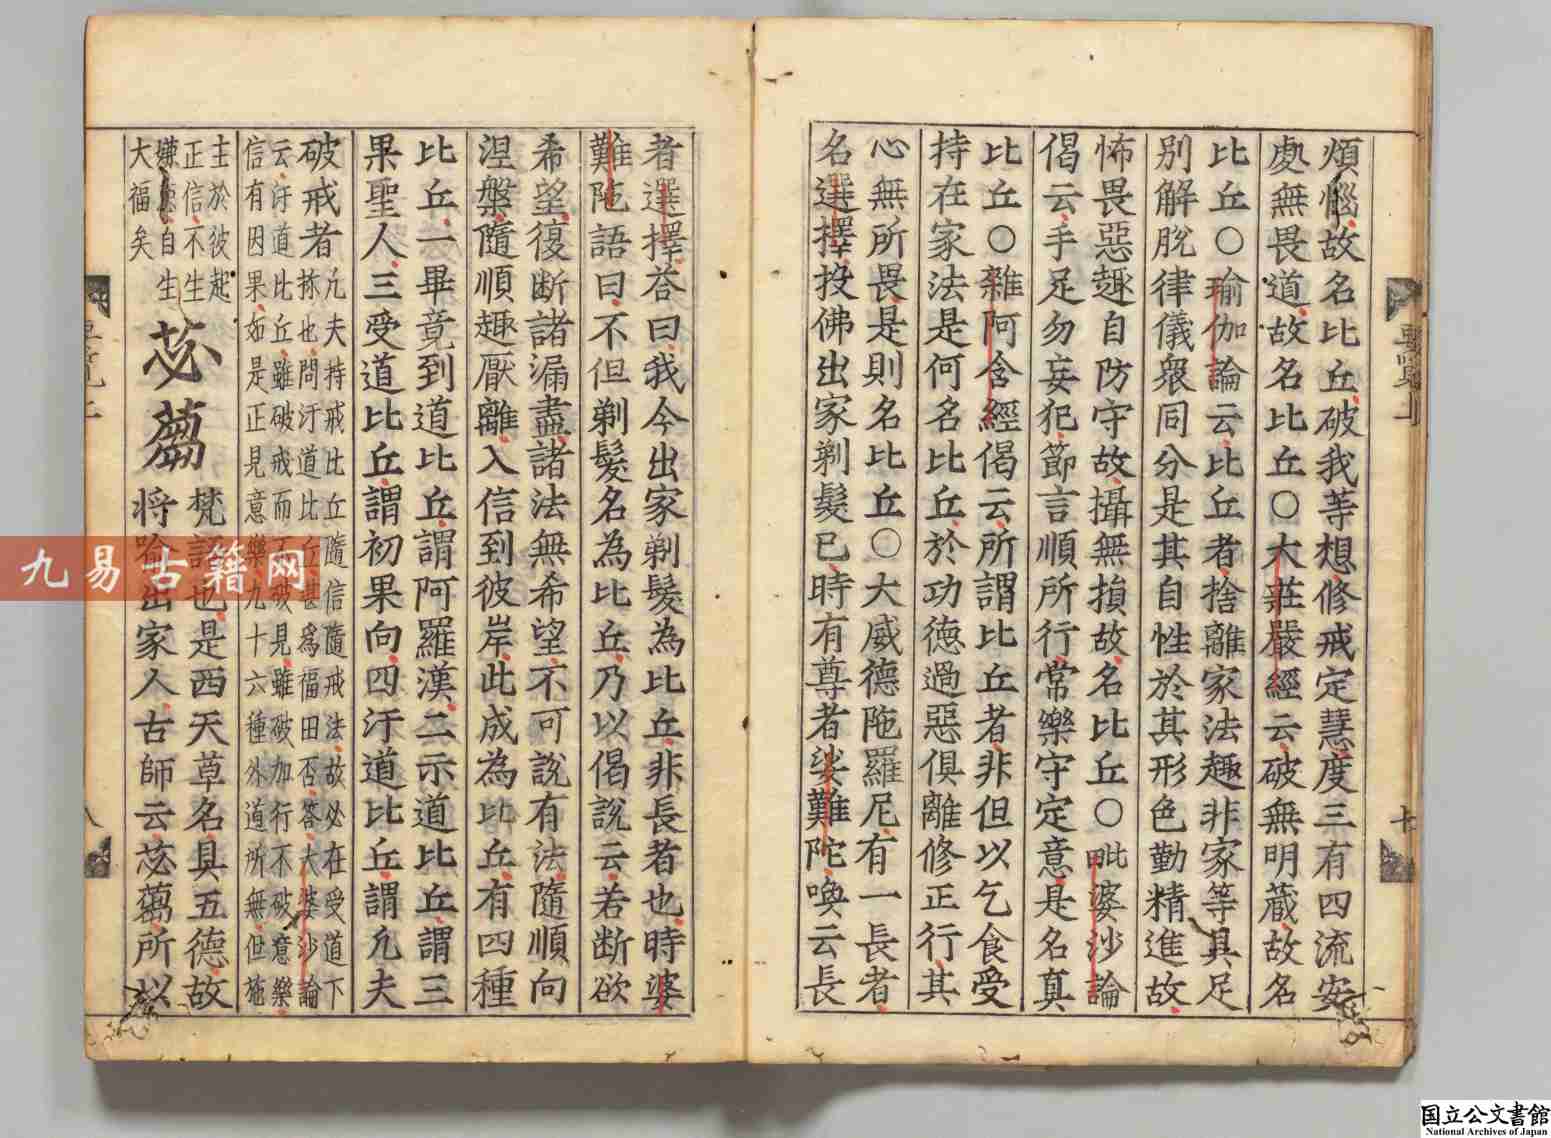 煩惱故名比丘破我等想修戒定慧度三有四流安
處無畏道故名比丘〇大莊嚴經云破無明藏故名
比丘〇瑜伽論云比丘者捨離家法趣非家等具足
別解脫律儀衆同分是其自性於其形色勤精進故
怖畏惡趣自防守故攝無損故名比丘〇毗婆沙論
偈云手足勿妄犯節言順所行常樂守定意是名真
比丘〇雜阿含經偈云所謂比丘者非但以乞食受
持在家法是何名比丘於功德過惡俱離修正行其
心無所畏是則名比丘〇大威德陁羅尼有一長者
名選擇投佛出家剃髮已時有尊者娑難陀喚云長
者選擇荅曰我今出家剃髮為比丘非長者也時婆
難陁語曰不但剃髮名為比丘乃以偈說云若斷欲
希望復斷諸漏盡諸法無希望不可說有法隨順向
涅槃隨順趣厭離入信到彼岸此成為比丘有四種
比丘一畢竟到道比丘謂阿羅漢二示道比丘謂三
果聖人三受道比丘謂初果向四汙道比丘謂凡夫
破戒者
凡夫持戒比丘隨信隨戒法故必在受道下
㧞也問汙道比丘甚爲福田否荅大婆沙論
云汙道比丘雖破戒而不破見雖破加行不破意樂
信有因果如是正見意樂九十六種外道所無但施
主於彼起
正信不生
嫌自生
大福矣
苾蒭
梵語也是西天草名具五德故
將喻出家人古師云苾蒭所以
要覽上
七
八
九易古籍网
国立公文書館
National Archives of Japan